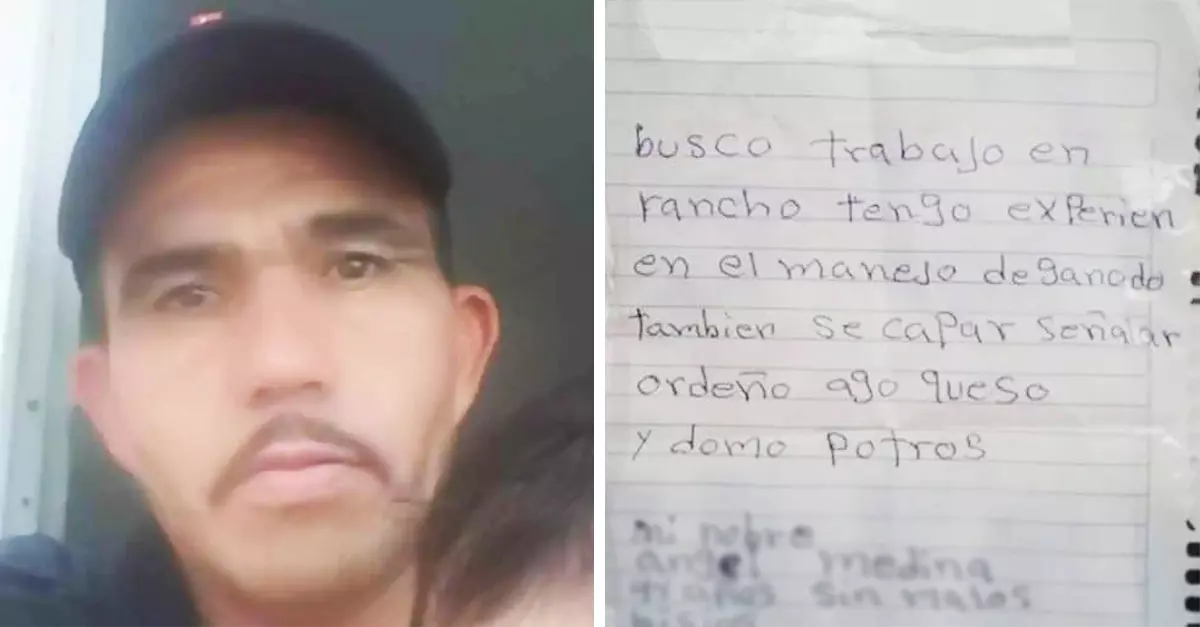 busco trabajo en
rancho tengo experien
en el manejo de ganado
tambien se capar señalar
ordeño ago queso
y domo potros
mi nobre
angel medina
años sin malos